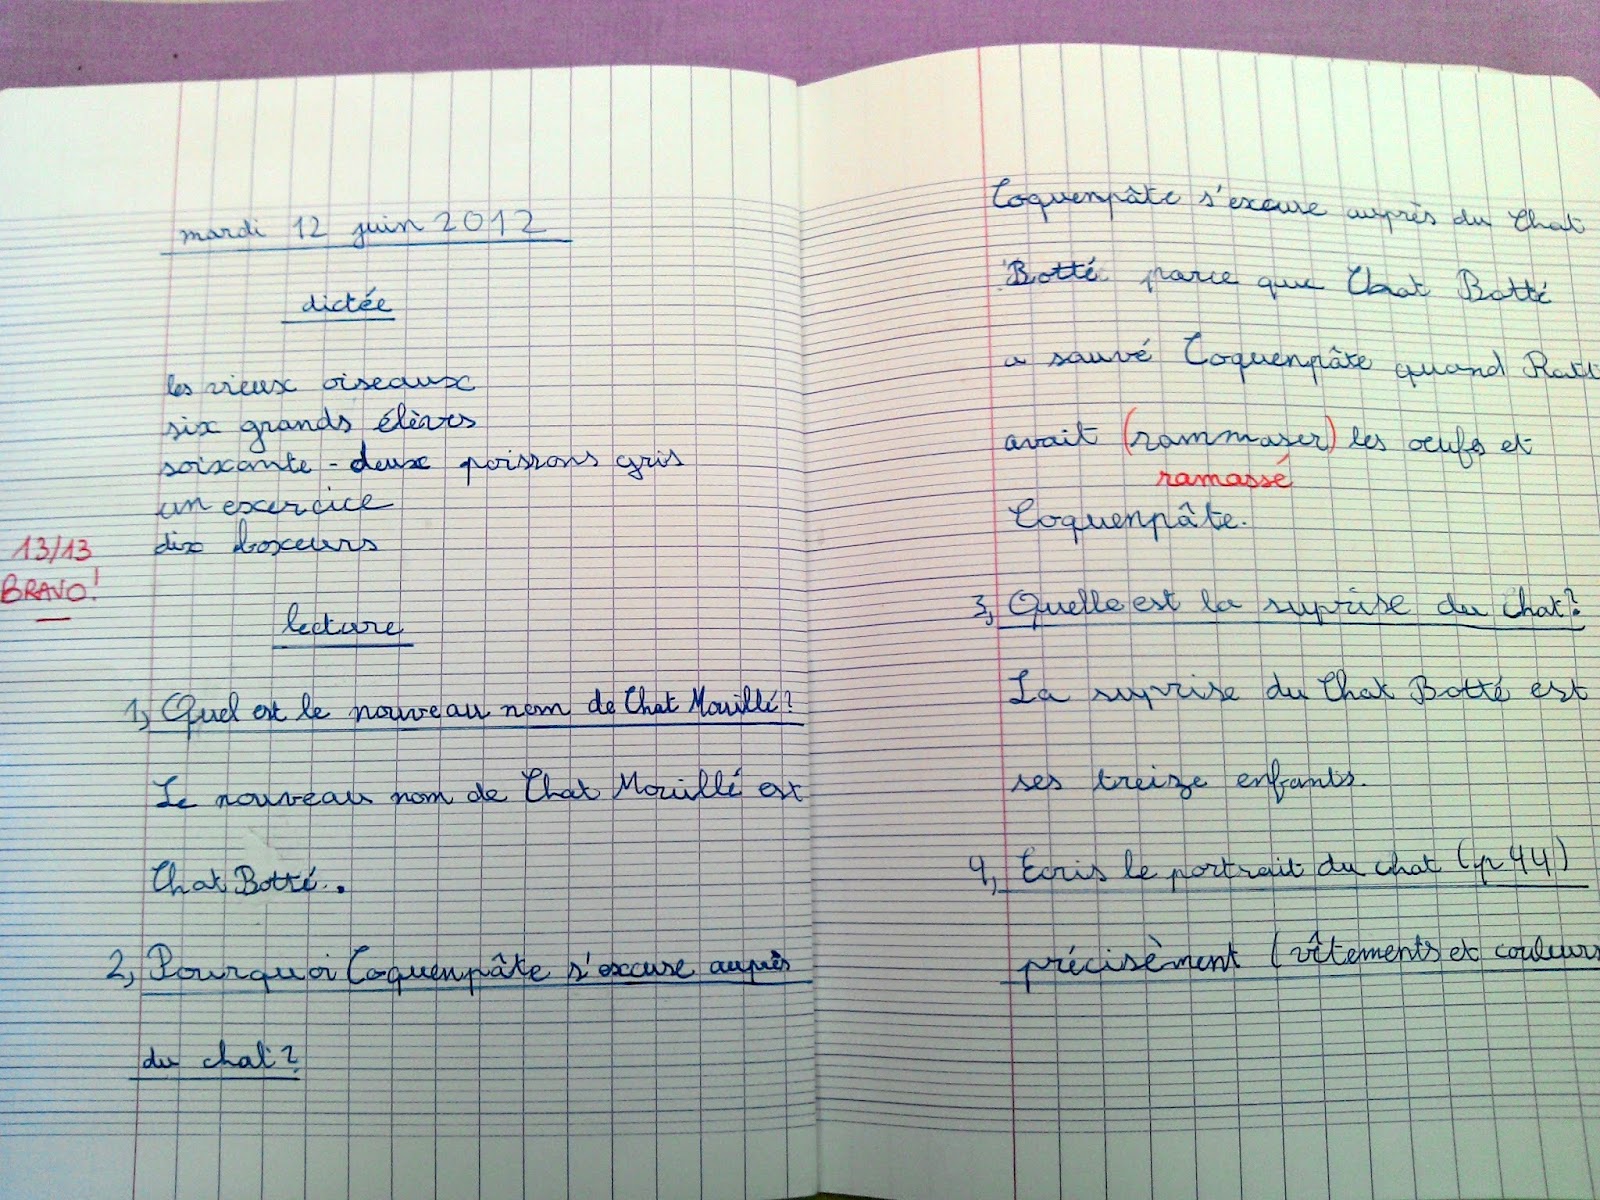 mardi 12 juin 2012
dictée
les vieux oiseaux
six grands élèves
soixante-deux poissons gris
un exercice
dix boxeurs
13/13
BRAVO!
lecture
1, Quel est le nouveau nom de Chat Mouillé?
Le nouveau nom de Chat Mouillé est
Chat Botté.
2, Pourquoi Coquenpâte s'excuse auprès
du chat?
Coquenpâte s'excuse auprès du Chat
Botté parce que Chat Botté
a sauvé Coquenpâte quand
avait (rammaser) les oeufs et
ramassé
Coquenpâte.
3, Quelle est la suprise du chat?
La suprise du Chat Botté est
ses treize enfants.
4, Ecris le portrait du chat (p 44)
précisèment (vêtements et couleurs